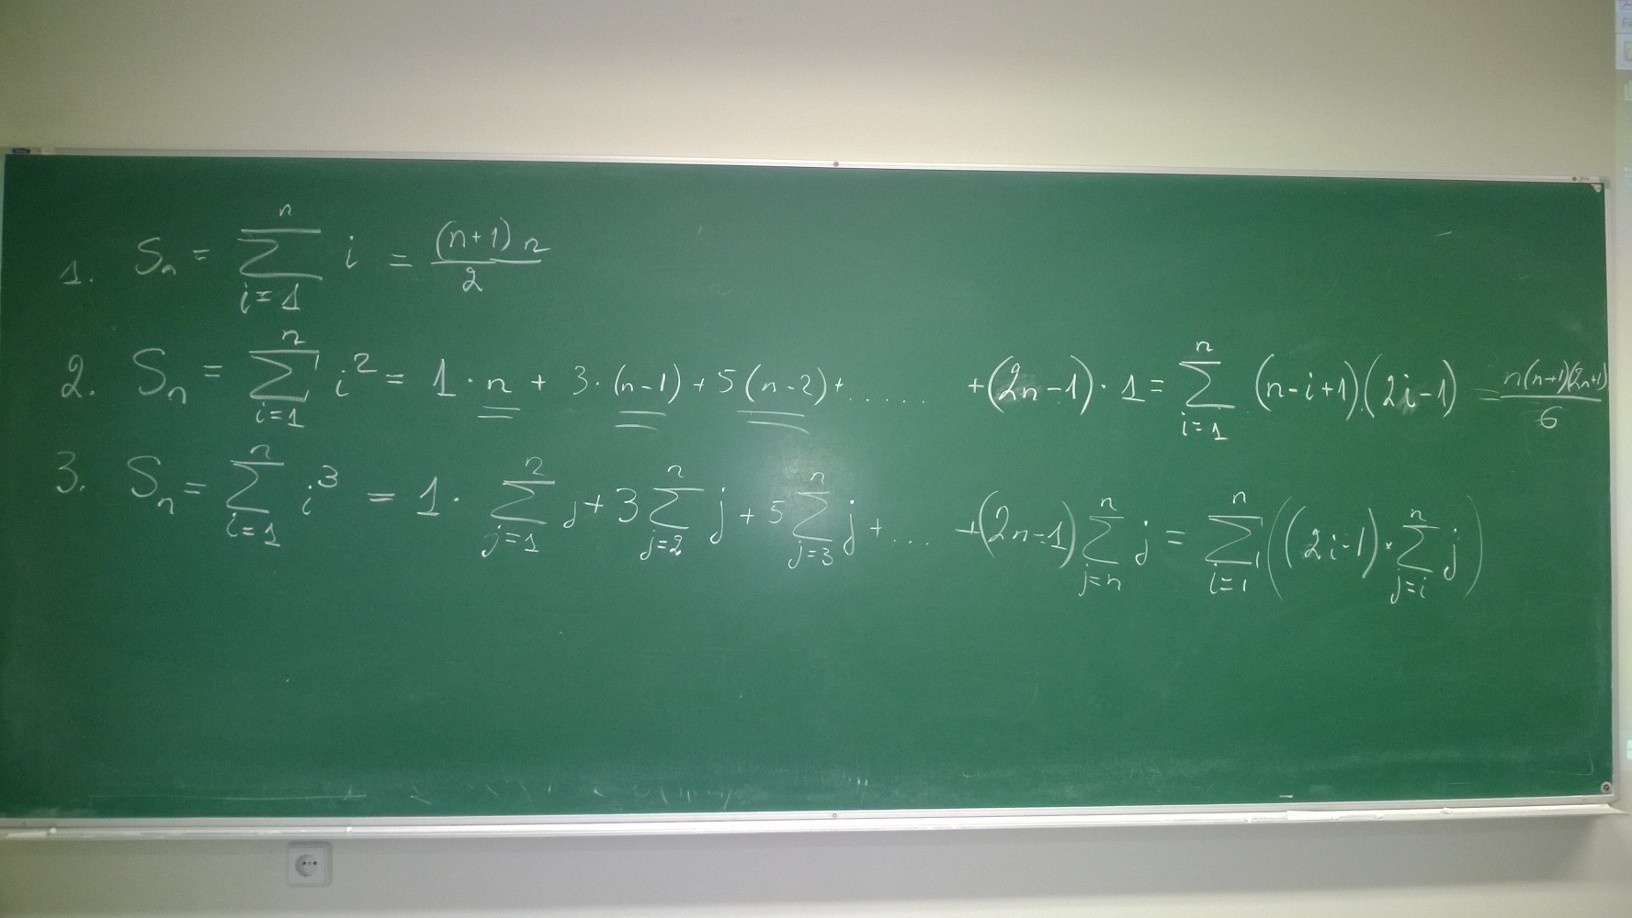 1. Sₙ = ∑_{i=1}^{n} i = (n+1)n / 2
2. Sₙ = ∑_{i=1}^{n} i² = 1·n + 3·(n-1) + 5(n-2) + ...... +(2n-1)·1 = ∑_{i=1}^{n} (n-i+1)(2i-1) = n(n+1)(2n+1) / 6
3. Sₙ = ∑_{i=1}^{n} i³ = 1· ∑_{j=1}^{n} j + 3 ∑_{j=2}^{n} j + 5 ∑_{j=3}^{n} j + ... +(2n-1) ∑_{j=n}^{n} j = ∑_{i=1}^{n} ((2i-1)· ∑_{j=i}^{n} j)